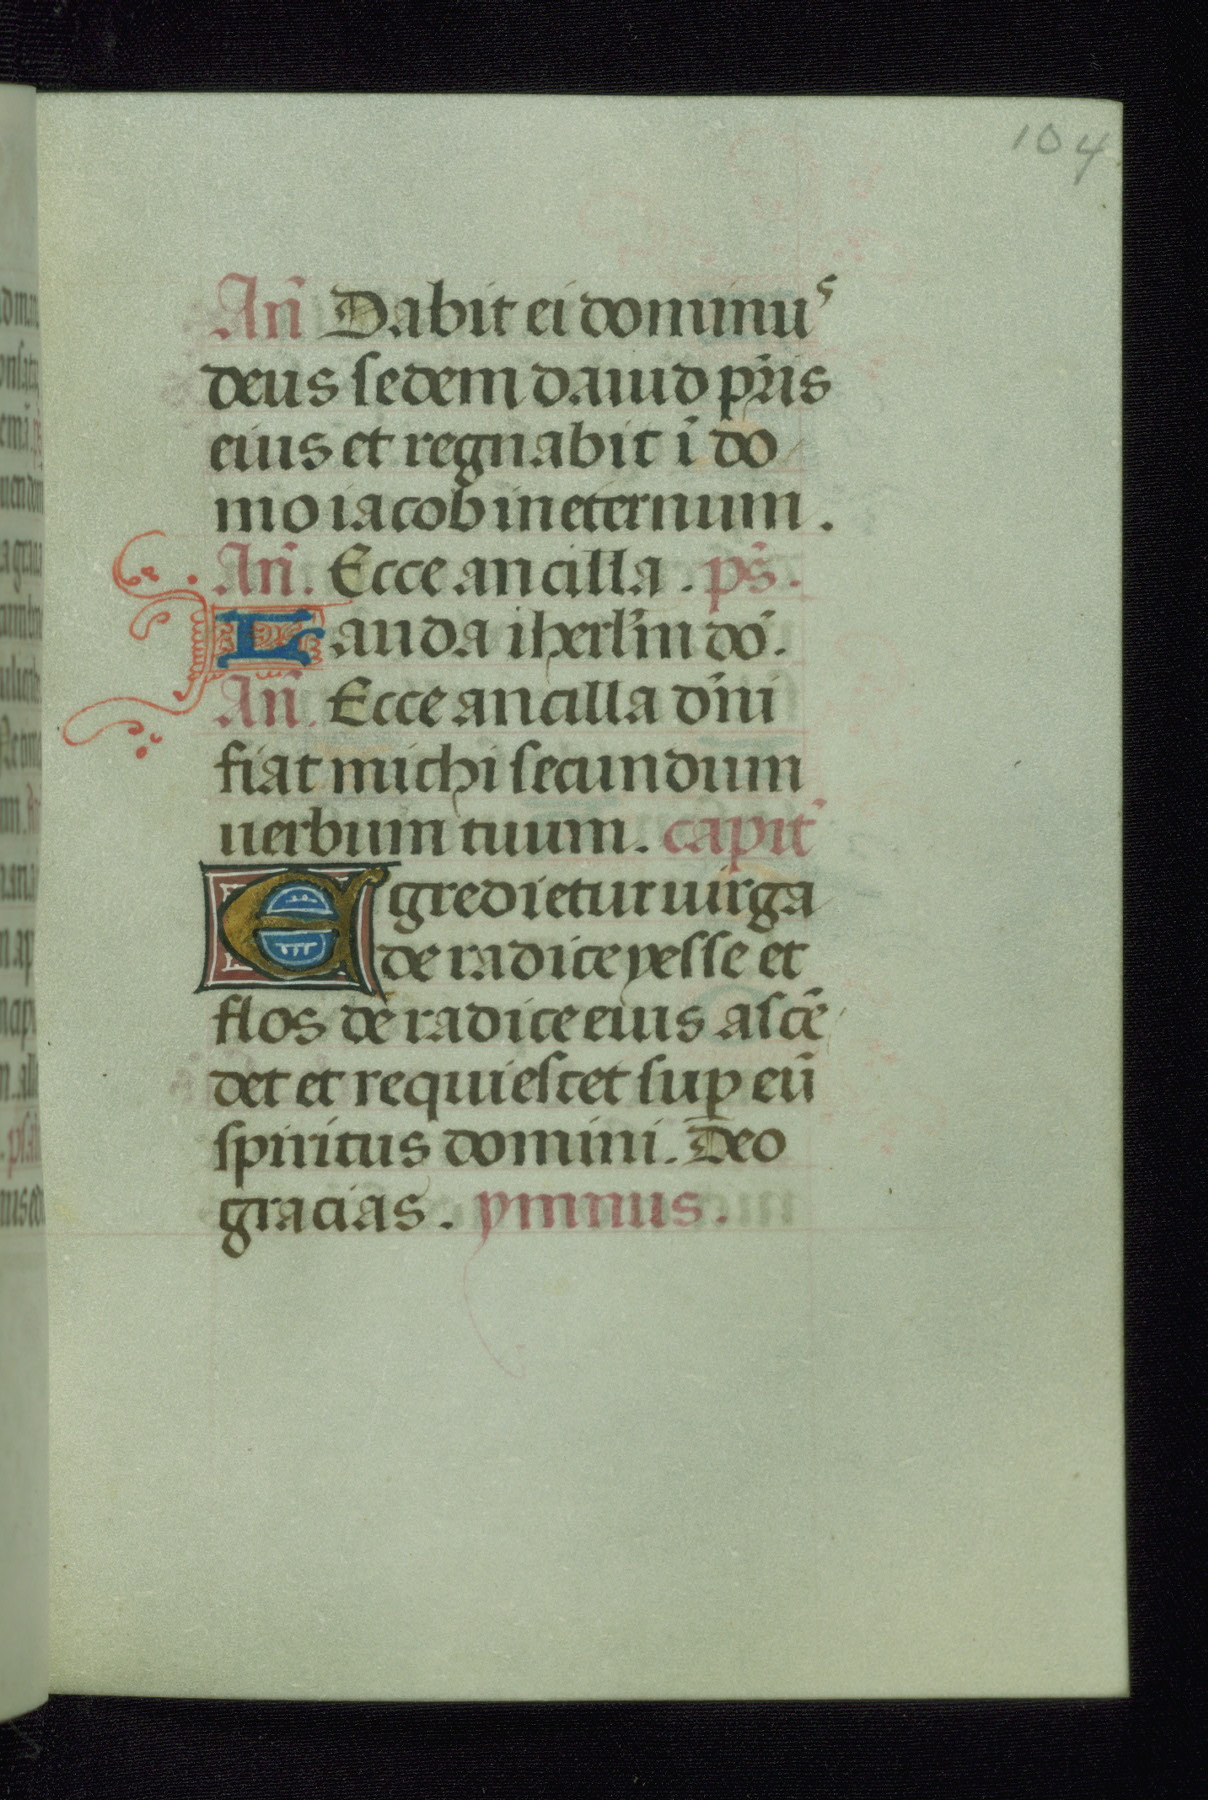 104
Añ Dabit ei dominus
deus sedem dauid pr̃is
eius et regnabit ĩ do
mo iacob in eternum.
Añ. Ecce ancilla. ps̃.
Lauda iherl̃m dõ.
Añ. Ecce ancilla dñi
fiat michi secundum
uerbum tuum. capit̃
Egredietur uirga
de radice yesse et
flos de radice eius ascẽ
det et requiescet sup̱ eũ
spiritus domini. Deo
gracias. ymnus.